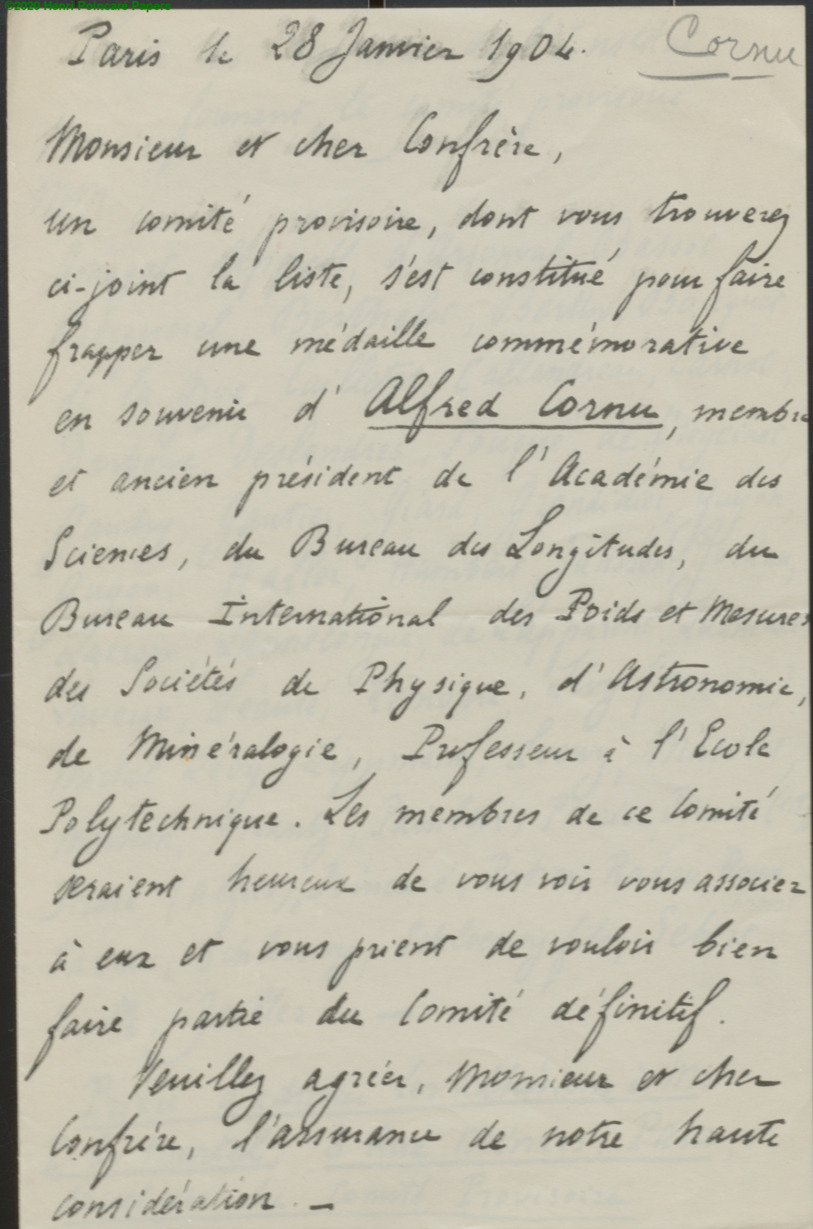 ©2020 Henri Poincaré Papers
Paris le 28 Janvier 1904. Cornu
Monsieur et cher Confrère,
un comité provisoire, dont vous trouverez
ci-joint la liste, s'est constitué pour faire
frapper une médaille commémorative
en souvenir d'Alfred Cornu, membre
et ancien président de l'Académie des
Sciences, du Bureau des Longitudes, du
Bureau International des Poids et Mesures
des Sociétés de Physique, d'Astronomie,
de Minéralogie, Professeur à l'Ecole
Polytechnique. Les membres de ce Comité
seraient heureux de vous voir vous associer
à eux et vous prient de vouloir bien
faire partie du Comité définitif.
Veuillez agréer, Monsieur et cher
Confrère, l'assurance de notre haute
considération. _